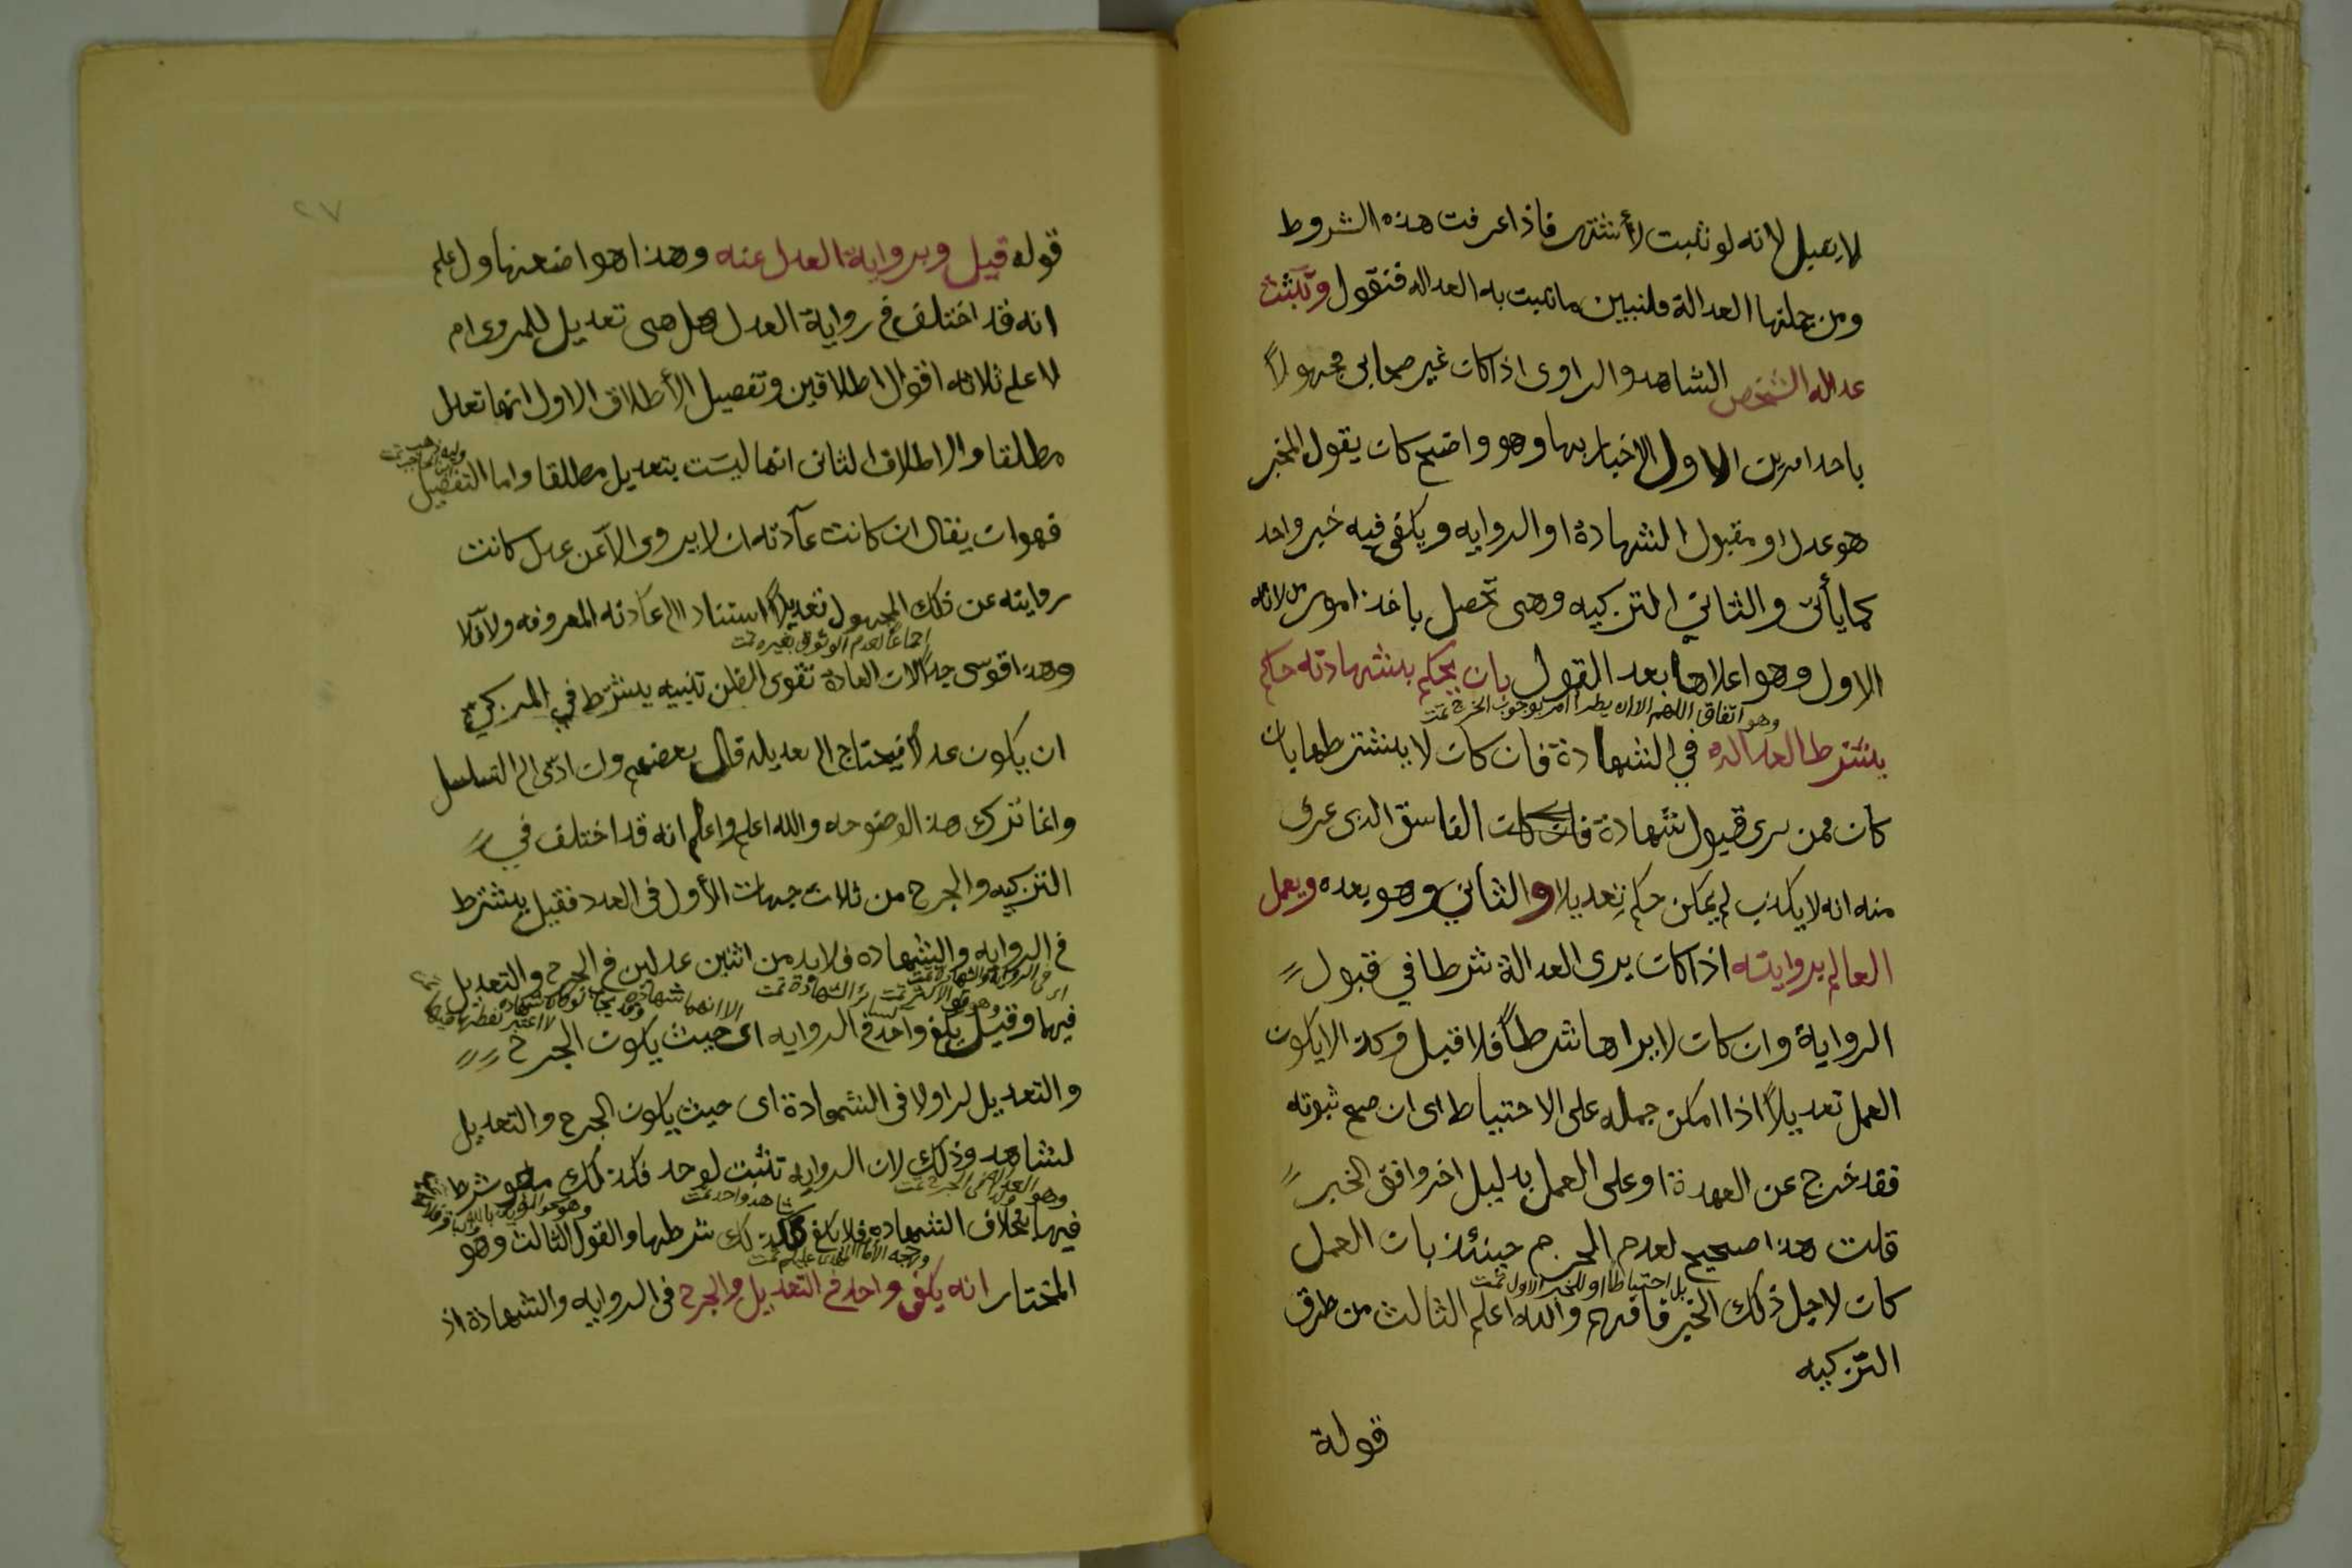 لا يقبل لانه لو ثبت لأشتهر فاذا عرفت هذه الشروط
ومن جملتها العدالة فلنبين ما تثبت به العداله فنقول وتثبت
عداله الشخص الشاهد والراوى اذا كان غير صحابى مجهولاً
باحد امرين الاول الاخبار بها وهو واضح كان يقول المخبر
هو عدل او مقبول الشهادة او الروايه ويكفى فيه خبر واحد
كما يأتى والثاني التزكيه وهى تحصل باحد امور ثلاثه
الاول وهو اعلاها بعد القول بان يحكم بشهادته حاكم
وهو اتفاق اللهم الا ان يطرأ امر يوجوب الجرح تمت
يشترط العداله في الشهادة فان كان لا يشترطها بان
كان ممن يرى قبول شهادة الفاسق الذى عرف
منه انه لا يكذب لم يكن حكمه تعديلا والثاني وهو بعده ويعمل
العالم بروايته اذا كان يرى العدالة شرطا في قبول
الرواية وان كان لا يراها شرطاً فلا قيل وكذا لا يكون
العمل تعديلاً اذا امكن حمله على الاحتياط اى ان صح ثبوته
فقد خرج عن العهدة او على العمل بدليل اخر وافق الخبر
قلت هذا صحيح لعدم الجزم حينئذ بان العمل
بل احتياطا او للخبر الاول تمت
كان لاجل ذلك الخبر فافهم والله اعلم الثالث من طرق
التزكيه
قولة
٢٧
قوله قيل وبرواية العدل عنه وهذا هو اضعفها واعلم
انه قد اختلف في رواية العدل هل هى تعديل للمروى ام
لا على ثلاثه اقوال اطلاقين وتفصيل الأطلاق الاول انها تعديل
مطلقا والاطلاق الثانى انها ليست بتعديل مطلقا واما التفصيل
فهو ان يقال ان كانت عادته ان لا يروى الا عن عدل كانت
روايته عن ذلك المجهول تعديلاً استنادا الى عادته المعروفه والا فلا
اجماعاً لعدم الوثوق بغيره تمت
وهذا قوى جداً لان العادة تقوى الظن تنبيه يشترط في المزكي
ان يكون عدلاً فيحتاج الى تعديله قال بعضهم وان ادى الى التسلسل
وانما ترك هذا لوضوحه والله اعلم واعلم انه قد اختلف في
التزكيه والجرح من ثلاث جهات الأول فى العدد فقيل يشترط
في الروايه والشهاده فلا بد من اثنين عدلين في الجرح والتعديل
اى فى الروايه والشهادة تمت
فيهما وقيل يكفى واحد في الروايه اى حيث يكون الجرح
والتعديل لراو لا فى الشهادة اى حيث يكون الجرح والتعديل
لشاهد وذلك لان الروايه تثبت لواحد فكذلك ما هو شرط
شاهد واحد تمت
فيها بخلاف الشهاده فلا يكفى فكذلك شرطها والقول الثالث وهو
المختار انه يكفى واحد في التعديل والجرح فى الروايه والشهادة اذ